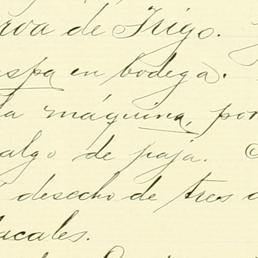 rva de Trigo.
aspa en bodega.
la máquina, por
algo de paja.
desecho de tres
acales.